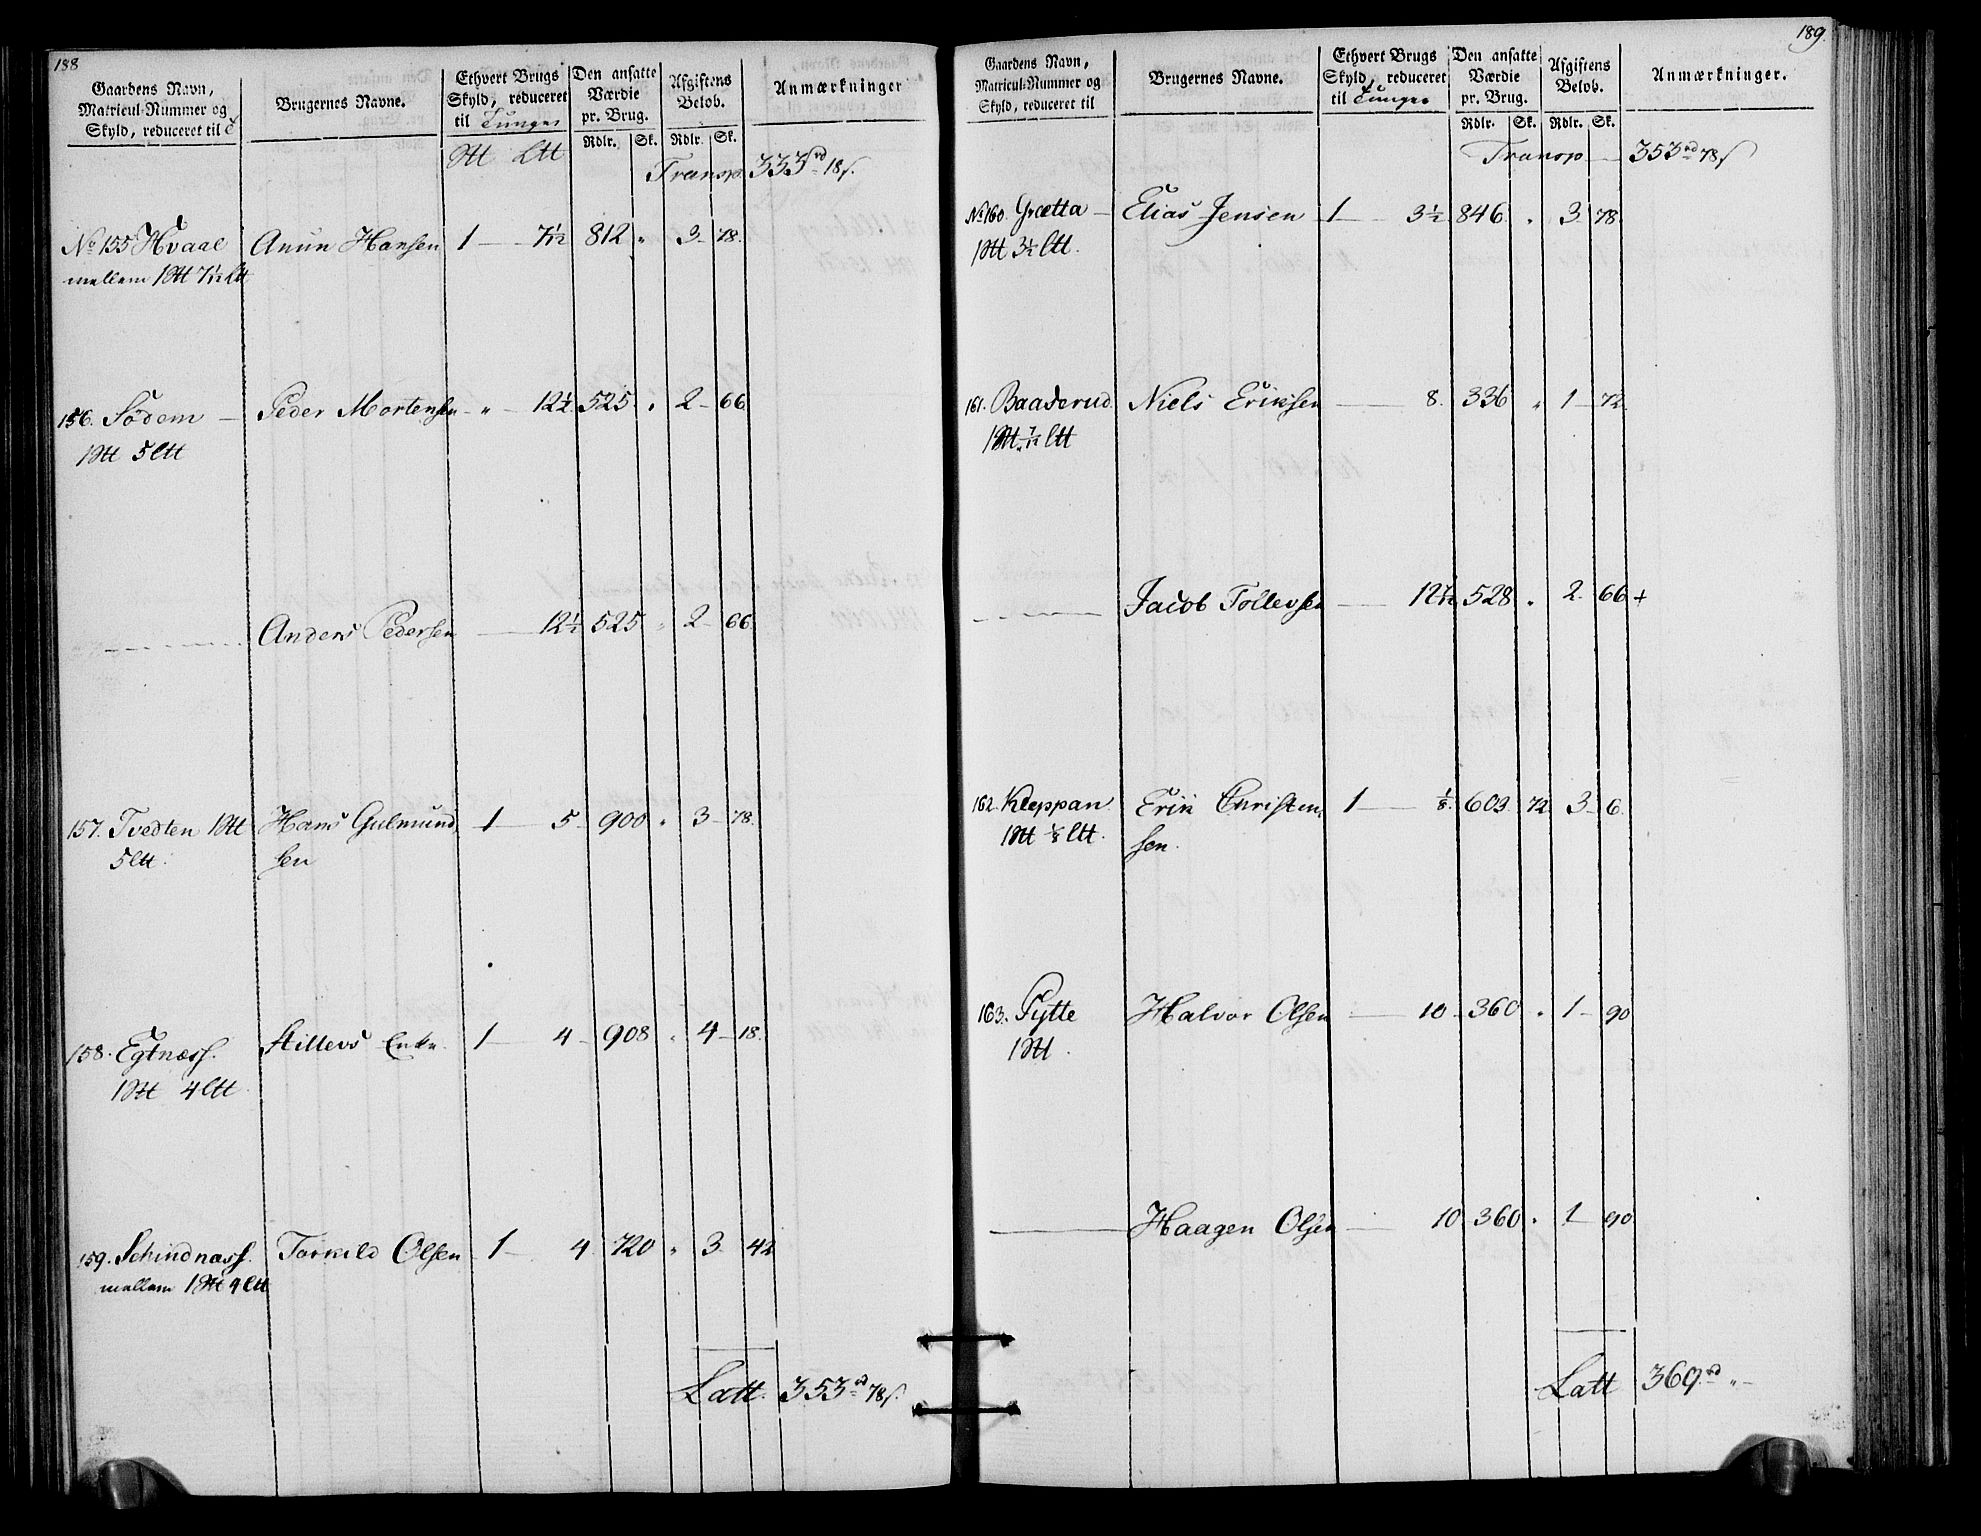 188
Gaardens Navn,
Matricul-Nummer og
Skyld, reduceret til T
Brugernes Navne.
Ethvert Brugs
Skyld, reduceret
til Tunger
Den ansatte
Værdie
pr. Brug.
Rdlr. Sk.
Afgiftens
Beløb.
Rdlr. Sk.
Anmærkninger
Transp. 333 rd 18 s.
No 155 Hvaal Anun Hansen 1 — 7 1/12 812 " 3 - 78.
mellem 1 7 1/12
156. Södem — Peder Mortensen - " - 12 1/2 525 " 2 - 66
1 5
Anders Pedersen — 12 1/2 525 " 2 - 66.
157. Tvedten 1 Hans Gulmund 1 — 5 - 900 " 3 - 78.
5 sen
158. Egtnæss. Sillevs Enke 1 — 4 - 908 " 4 - 18.
1 4
159. Schindnæss. Torkild Olsen 1 — 4 720 " 3 - 42
mellem 1 4
Latt. 353 rd 78 s.
189.
Gaardens Navn,
Matricul-Nummer og
Skyld, reduceret til
Brugernes Navne.
Ethvert Brugs
Skyld, reduceret
til Tunger
Den ansatte
Værdie
pr. Brug.
Rdlr. Sk.
Afgiftens
Beløb.
Rdlr. Sk.
Anmærkninger.
Transp — 353 rd 78 s
No 160. Grætta — Elias Jensen 1 — 3 1/2 846 " 3 - 78.
1 3 1/2
161. Baaserud Niels Eriksen — 8. 336 " 1 - 72.
1 7/12
Jacob Tollevsen — 12 7/12 528 " 2 - 66 +
162. Kleppan Erik Christen 1 — 1/8 603 72 3 - 6.
1 1/8 sen.
163. Pytte Halvor Olsen — 10 - 360 " 1 - 90
1
Haagen Olsen — 10 360 " 1 - 90
Latt 369 rd "